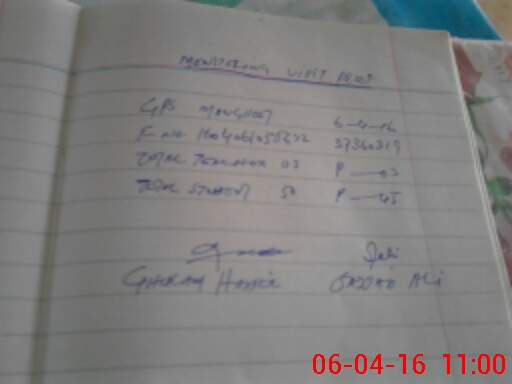 MONITERING VISIT PROOF
GPS 6-4-16
F NO. 37360319
TOTAL TEACHER 03 P — 03
TOTAL STUDENT 50 P — 45
GHULAM HUSSAIN SAJJAD ALI
06-04-16 11:00